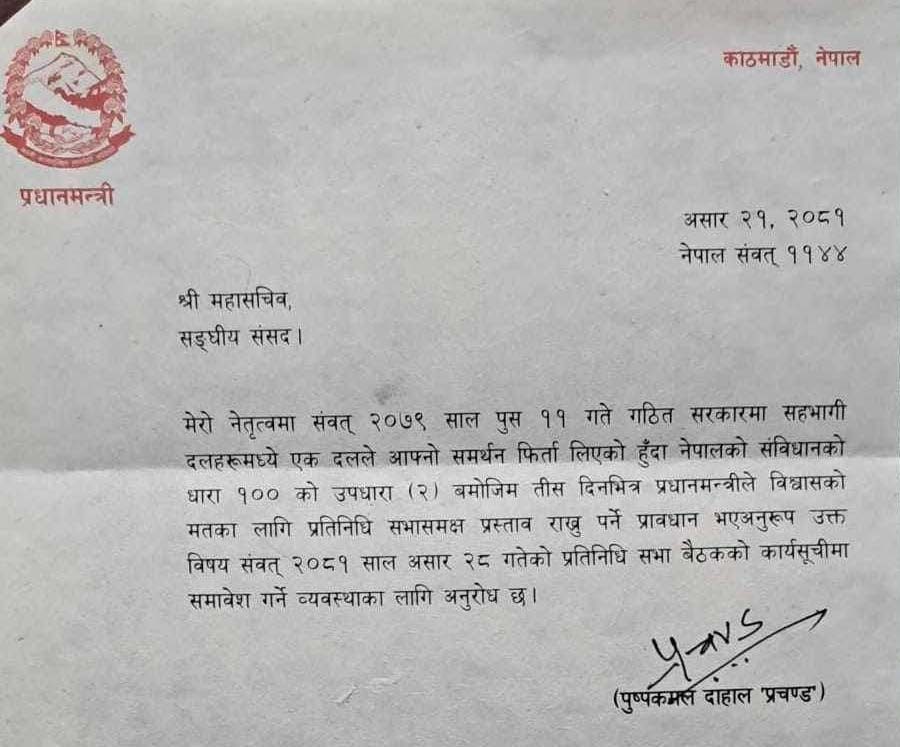 काठमाडौं, नेपाल
प्रधानमन्त्री
असार २१, २०८१
नेपाल संवत् ११४४
श्री महासचिव,
सङ्घीय संसद।
मेरो नेतृत्वमा संवत् २०७९ साल पुस ११ गते गठित सरकारमा सहभागी
दलहरूमध्ये एक दलले आफ्नो समर्थन फिर्ता लिएको हुँदा नेपालको संविधानको
धारा १०० को उपधारा (२) बमोजिम तीस दिनभित्र प्रधानमन्त्रीले विश्वासको
मतका लागि प्रतिनिधि सभासमक्ष प्रस्ताव राख्नु पर्ने प्रावधान भएअनुरूप उक्त
विषय संवत् २०८१ साल असार २८ गतेको प्रतिनिधि सभा बैठकको कार्यसूचीमा
समावेश गर्ने व्यवस्थाका लागि अनुरोध छ।
(पुष्पकमल दाहाल 'प्रचण्ड')